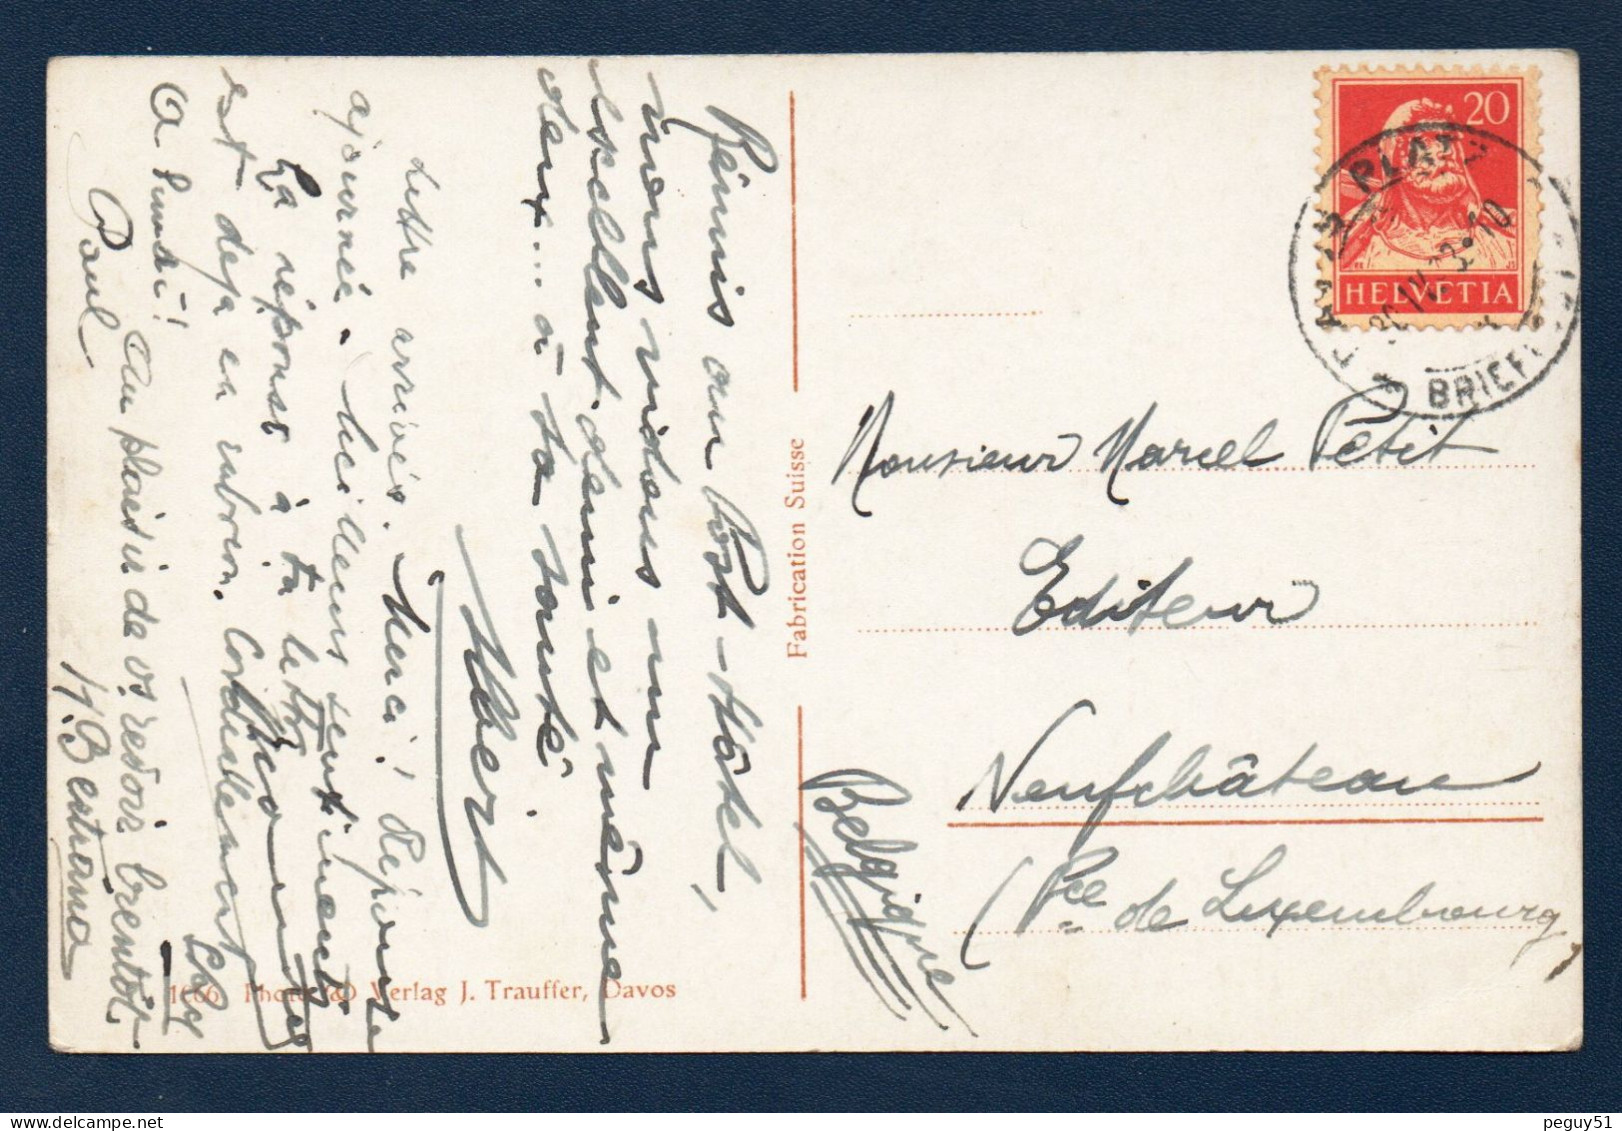 Réunis au Post-Hôtel,
nous vidons un
excellent demi et même
deux... à ta santé
Albert
Lettre arrivée. Merci! Réponse
ajournée. Meilleurs sentiments
La réponse à ta lettre
est déjà en
Cordialement
A lundi!
Paul
Au plaisir de vs revoir bientôt
Fabrication Suisse
Photo & Verlag J. Trauffer, Davos
20
HELVETIA
DAVOS PLATZ
BRIEF
Monsieur Marcel Petit
Editeur
Neufchâteau
(Pce de Luxembourg)
Belgique
peguy51